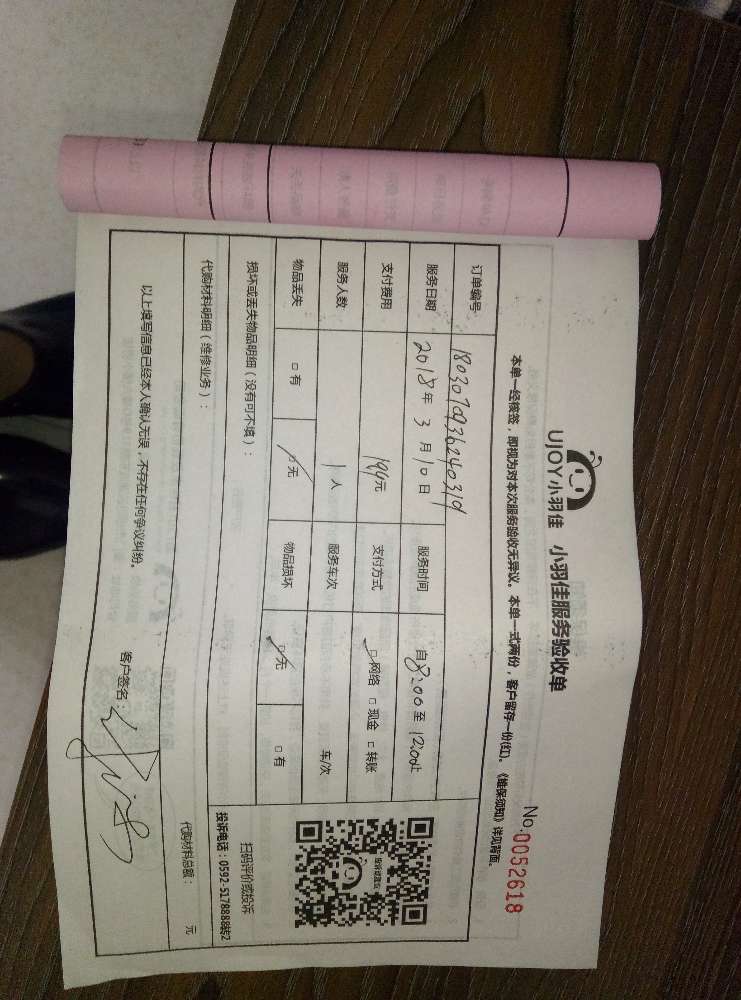 UJOY小羽佳 小羽佳服务验收单
No.0052618
本单一经核签，即视为对本次服务验收无异议。本单一式两份，客户留存一份(红)。《维保须知》详见背面。
订单编号 180307093624031
服务日期 2018年3月10日 服务时间 自8:00至12:00止
支付费用 194元 支付方式 □网络 □现金 □转账
服务人数 1人 服务车次 车/次
物品丢失 □有 □无 物品损坏 □无 □有
损坏或丢失物品明细（没有可不填）：
扫码评价或投诉
投诉电话：0592-5178888转2
代购材料明细（维修业务）：
代购材料总额： 元
以上填写信息已经本人确认无误，不存在任何争议纠纷。
客户签名：